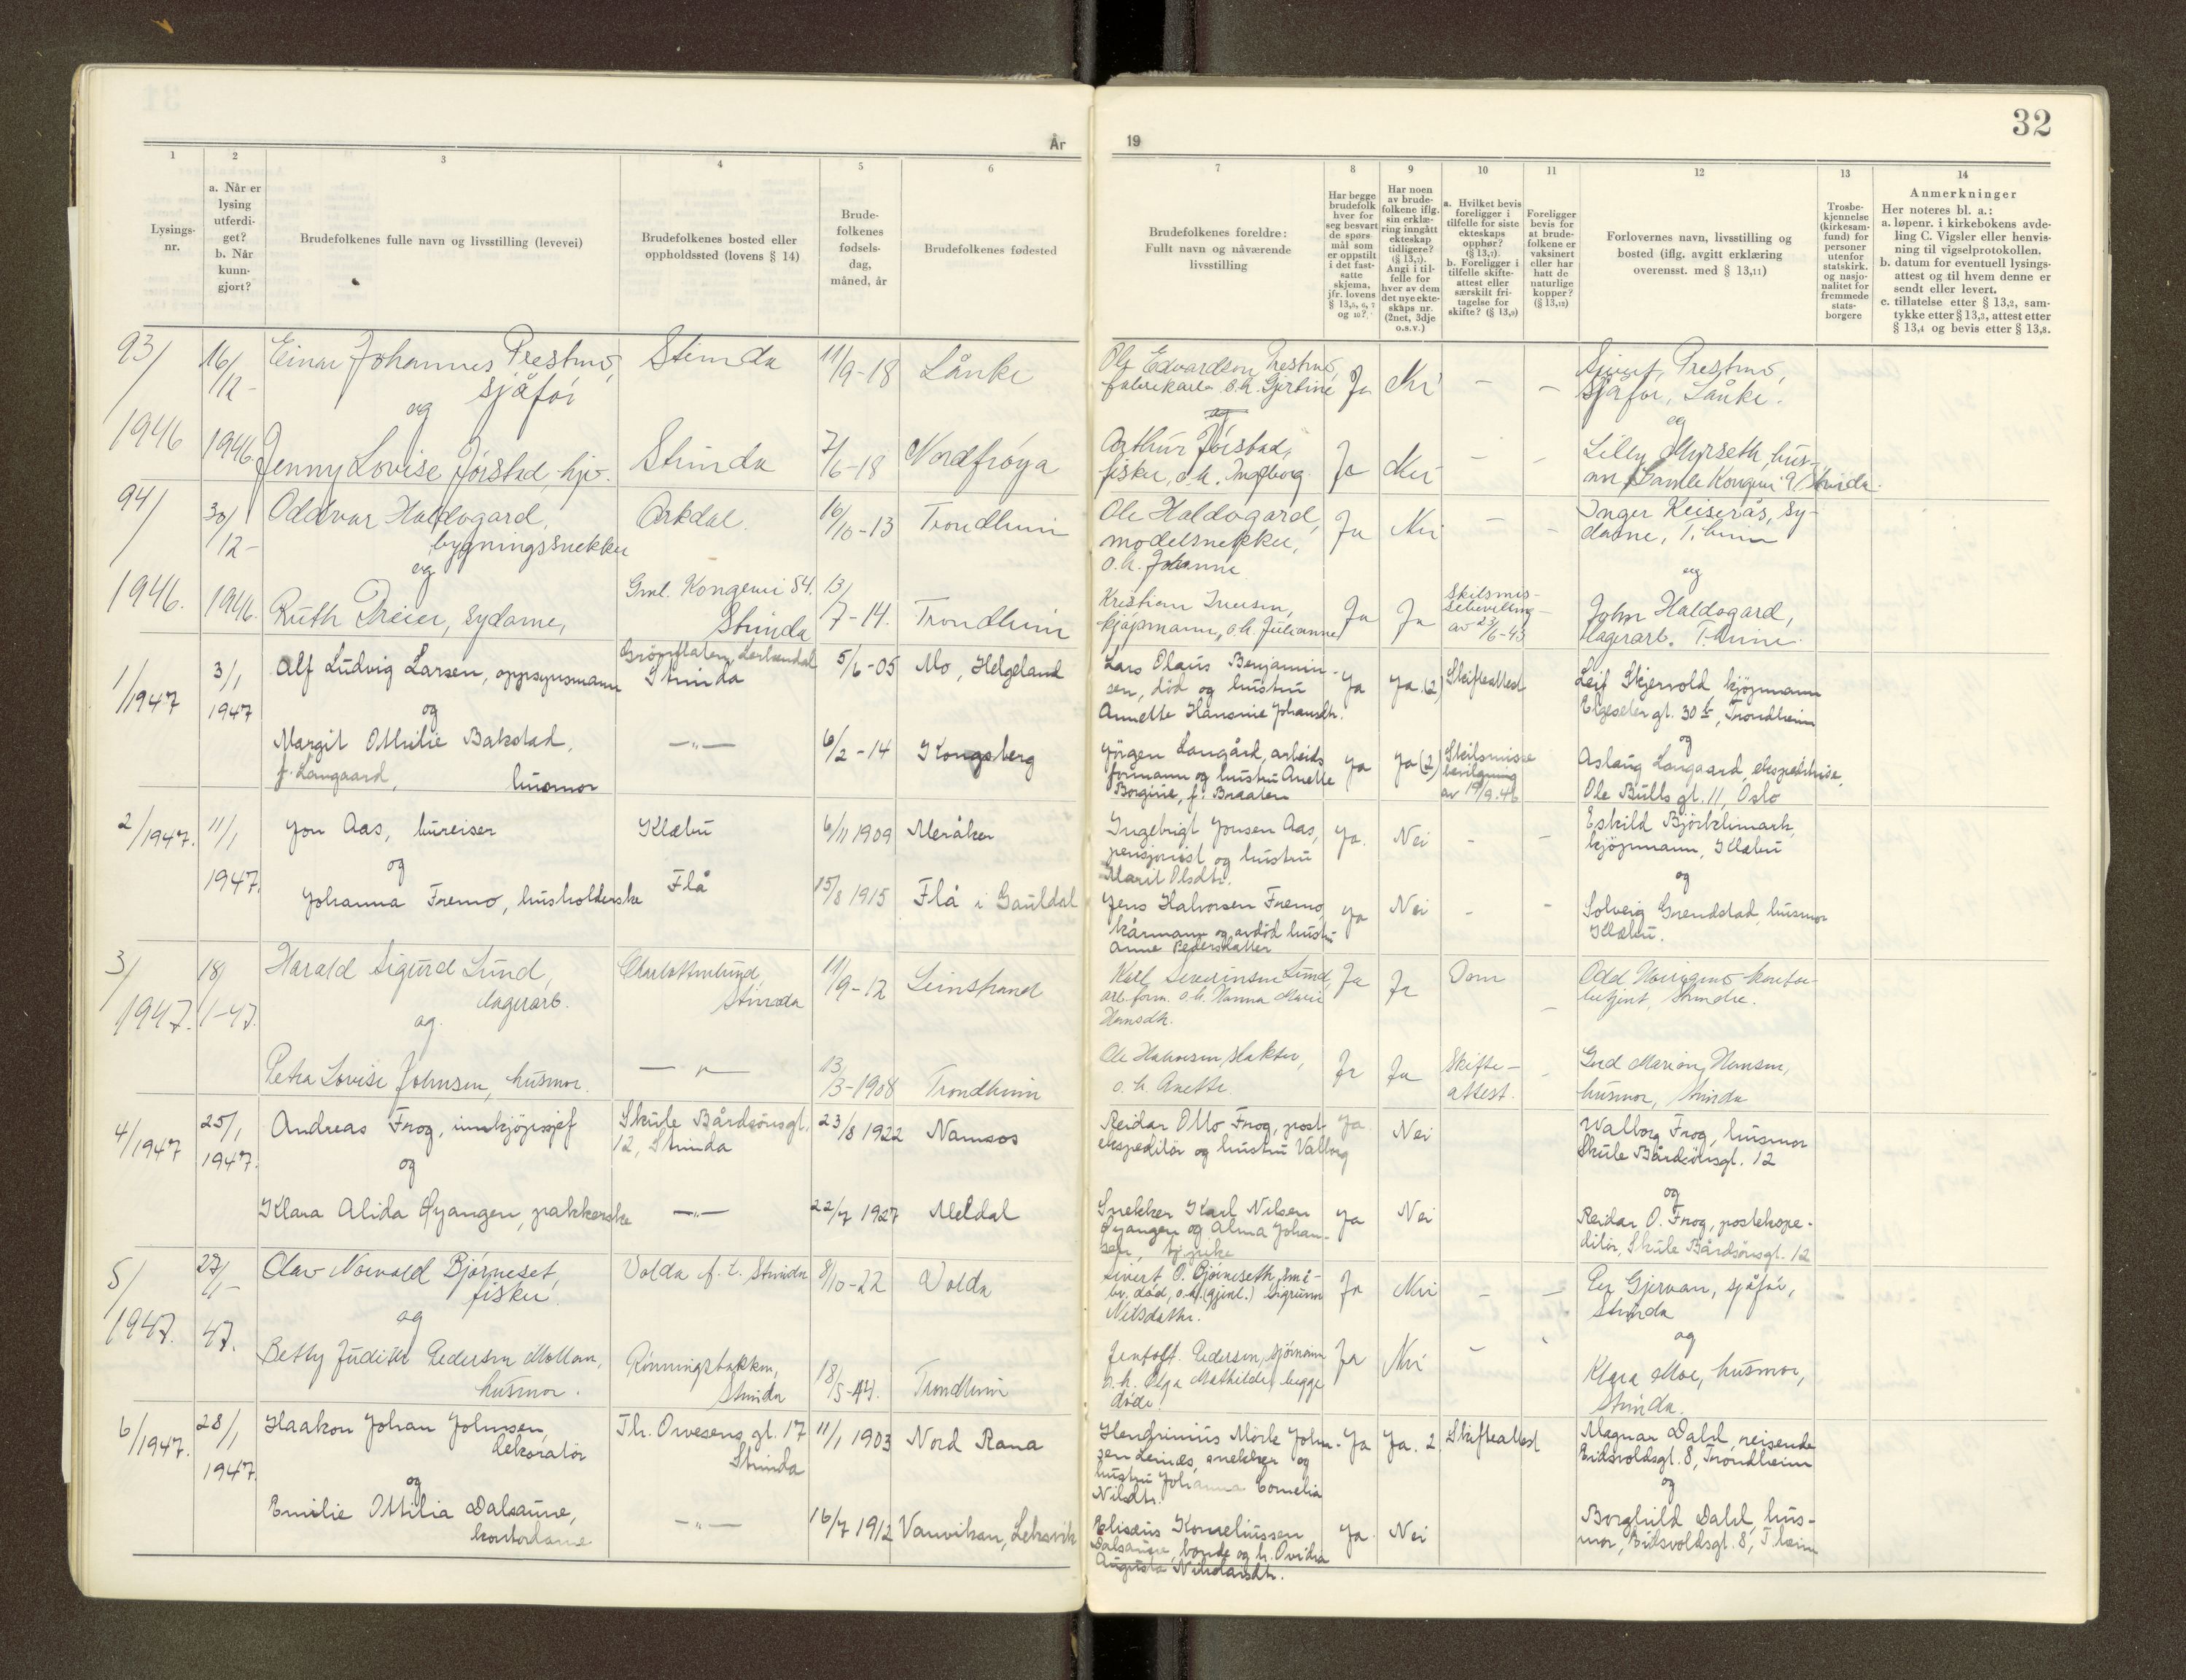 32
År
19
1
Lysings-
nr.
2
a. Når er
lysing
utferdi-
get?
b. Når
kunn-
gjort?
3
Brudefolkenes fulle navn og livsstilling (levevei)
4
Brudefolkenes bosted eller
oppholdssted (lovens § 14)
5
Brude-
folkenes
fødsels-
dag,
måned, år
6
Brudefolkenes fødested
7
Brudefolkenes foreldre:
Fullt navn og nåværende
livsstilling
8
Har begge
brudefolk
hver for
seg besvart
de spørs-
mål som
er oppstilt
i det fast-
satte
skjema,
jfr. lovens
§ 13,5, 6, 7
og 10?
9
Har noen
av brude-
folkene iflg.
sin erklæ-
ring inngått
ekteskap
tidligere?
(§ 13,7).
Angi i til-
felle for
hver av dem
det nye ekte-
skaps nr.
(2net, 3dje
o.s.v.)
10
a. Hvilket bevis
foreligger i
tilfelle for siste
ekteskaps
opphør?
(§ 13,7).
b. Foreligger i
tilfelle skifte-
attest eller
særskilt fri-
tagelse for
skifte? (§ 13,9)
11
Foreligger
bevis for
at brude-
folkene er
vaksinert
eller har
hatt de
naturlige
kopper?
(§ 13,12)
12
Forlovernes navn, livsstilling og
bosted (iflg. avgitt erklæring
overensst. med § 13,11)
13
Trosbe-
kjennelse
(kirkesam-
fund) for
personer
utenfor
statskirk.
og nasjo-
nalitet for
fremmede
stats-
borgere
14
Anmerkninger
Her noteres bl. a.:
a. løpenr. i kirkebokens avde-
ling C. Vigsler eller henvis-
ning til vigselprotokollen.
b. datum for eventuell lysings-
attest og til hvem denne er
sendt eller levert.
c. tillatelse etter § 13,2, sam-
tykke etter § 13,3, attest etter
§ 13,4 og bevis etter § 13,8.
93/
1946
16/12-
1946
Einar Johannes Prestmo,
sjåför
og
Jenny Lovise Jörstad, hjv.
Strinda
Strinda
11/9-18
7/6-18
Lånke
Nordfröya
Ole Edvardsen Prestmo,
fabrikarb. o.h. Gjertine
og
Arthur Jörstad,
fisker, o.h. Ingeborg
Ja
Nei
-
-
Ja
Nei
-
-
Sivert Prestmo,
sjåför, Lånke.
og
Lilly Myrseth, hus-
mor, Gamle Kongevei 9, Strinda.
94/
1946.
30/12-
1946.
Oddvar Haldogard,
bygningssnekker
og
Ruth Dreier, sydame,
Orkdal.
Gml. Kongevei 54.
Strinda
16/10-13
13/7-14.
Trondheim
Trondheim
Ole Haldogard,
modelsnekker,
o.h. Johanne
Kristian Iversen,
kjöpmann, o.h. Julianne
Ja
Nei
-
-
Ja
Ja
Skilsmis-
sebevilling
av 23/6-43
Inger Keiserås, sy-
dame, T.heim
og
John Haldogard,
lagerarb. T.heim.
1/1947
3/1
1947
Alf Ludvig Larsen, oppsynsmann
og
Margit Othilie Bakstad,
f. Langaard, husmor
Lerkendal
Strinda
-"-
5/6-05
6/2-14
Mo, Helgeland
Kongsberg
Lars Olaus Benjamin-
sen, död og hustru
Annette Hansine Johansdtr.
Jörgen Langård, arbeids
formann og hustru Anette
Borgine, f. Braaten
Ja
Ja (2)
Skifteattest
Ja
Ja (2)
Skilsmisse
bevilgning
av 19/9.46
Leif Skjervold, kjöpmann
Elgeseter gt. 30 b, Trondheim
og
Aslaug Langaard, ekspeditrise,
Ole Bulls gt. 11, Oslo
2/1947.
11/1
1947.
Jon Aas, bureiser
og
Johanna Fremo, husholderske
Klæbu
Flå
6/11 1909
15/8 1915
Meråker
Flå i Gauldal
Ingebrigt Jonsen Aas,
pensjonist og hustru
Marit Olsdtr.
Jens Halvorsen Fremo,
kårmann og avdöd hustru
Anne Pedersdatter
Ja.
Nei
-
-
Ja
Nei
-
-
Eskild Björklimark,
kjöpmann, Klæbu
og
Solveig Grendstad, husmor
Klæbu.
3/
1947.
18/
1-47.
Harald Sigurd Lund,
lagerarb.
og
Petra Lovise Johnsen, husmor.
Charlottenlund,
Strinda
-"-
11/9-12
13/3-1908
Leinstrand
Trondheim
Karl Severinsen Lund,
arb.form. o.h. Hanna Marie
Hansdtr.
Ole Halvorsen, slakter,
o.h. Anette
Ja
Ja
Dom
-
Ja
Ja
Skifte-
attest.
-
betjent, Strinda.
Gerd Marion Hansen,
husmor, Strinda
4/1947
25/1
1947.
Andreas Frog, innkjöpssjef
og
Klara Alida Øyangen, pakkerske
Skule Bårdsönsgt.
12, Strinda
-"-
23/8 1922
22/7 1927
Namsos
Meldal
Reidar Otto Frog, post
ekspeditör og hustru Valborg
Snekker Karl Nilsen
Øyangen og Alma Johan-
sen,
Ja
Nei
Ja
Nei
Walborg Frog, husmor
Skule Bårdsönsgt. 12
og
Reidar O. Frog, postekspe-
ditör, Skule Bårdsönsgt. 12
5/
1947.
27/1-
47.
Olav Norvald Björneset,
fisker.
og
Betty Judith Pedersen Mollan,
husmor.
Volda f.t. Strinda
Rönningsbakken,
Strinda
8/10-22
18/5-
Volda
Trondheim
Sivert O. Björneseth, små-
br. död, o.h. (gjenl.) Sigrunn
Nilsdatter.
Pedersen, sjömann
o.h. Olga Mathilde, begge
döde!
Ja
Nei
-
-
Ja
Nei
-
Per Gjervan, sjåför,
Strinda
og
Klara Moe, husmor,
Strinda.
6/1947.
28/1
1947.
Haakon Johan Johnsen,
dekoratör
og
Emilie Ottilia Dalsaune,
kontordame
Th. Owesens gt. 17
Strinda
-"-
11/1 1903
16/7 1912
Nord Rana
Vanvikan, Leksvik
Hendrinius Mörk John-
sen, snekker og
hustru Johanna Cornelia
Nilsdtr.
Eliseus Korneliussen
Dalsaune, bonde og h. Ovidia
Augusta Nikolaisdtr.
Ja
Ja. 2
Skifteattest
Ja.
Nei
Magnar Dahl, reisende
Eidsvoldsgt. 8, Trondheim
og
Borghild Dahl, hus-
mor, Eidsvoldsgt. 8, T.heim